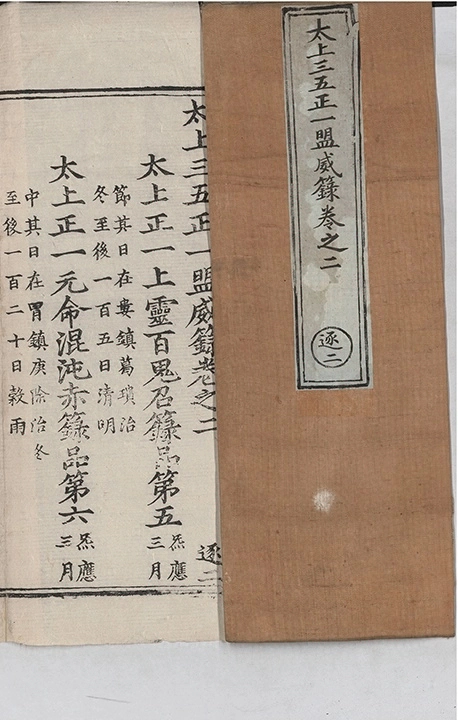 太上三五正一盟威籙卷之二
逐二
太上三五正一盟威籙卷之二
逐二
太上正一上靈百鬼召籙品第五
炁應三月
節其日在婁鎮葛璝治
冬至後一百五日清明
太上正一元命混沌赤籙品第六
炁應三月
中其日在胃鎮庚除治冬
至後一百二十日穀雨